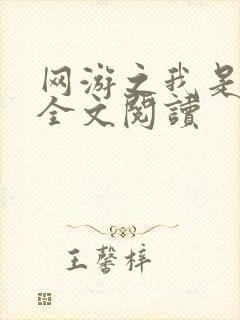 网游之我是
全文閱讀
王馨梓